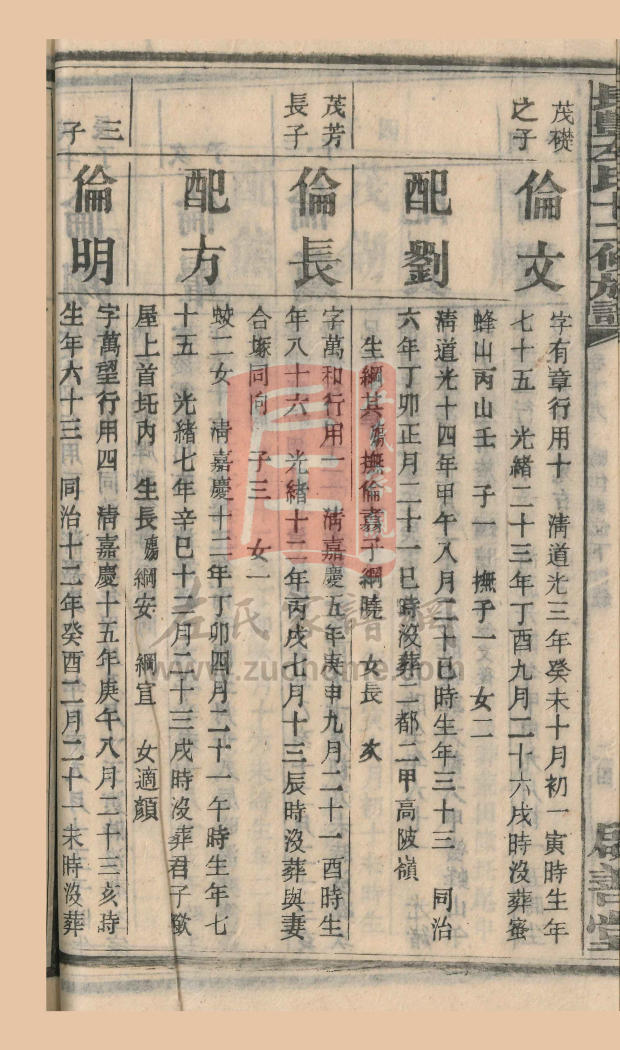 長豐左氏十二修族譜
啟善堂
茂礎
之子
倫文
字有章行用十 清道光三年癸未十月初一寅時生年
七十五 光緒二十三年丁酉九月二十六戌時沒葬蜜
蜂山丙山壬 子一 撫子一 女二
配劉
清道光十四年甲午八月二十巳時生年三十三 同治
六年丁卯正月二十一巳時沒葬二都二甲高陂嶺
生綱其殤撫倫嘉子綱曉 女長 次
茂芳
長子
倫長
字萬和行用一 清嘉慶五年庚申九月二十一酉時生
年八十六 光緒十二年丙戌七月十三辰時沒葬與妻
合塚同向 子三 女一
配方
蛟二女 清嘉慶十二年丁卯四月二十一午時生年七
十五 光緒七年辛巳十二月二十三戌時沒葬君子墩
屋上首圫內 生長殤綱安 綱宜 女適顏
三
子
倫明
字萬望行用四 清嘉慶十五年庚午八月二十三亥時
生年六十三 同治十二年癸酉二月二十一未時沒葬
左氏家譜網
www.zuohome.com